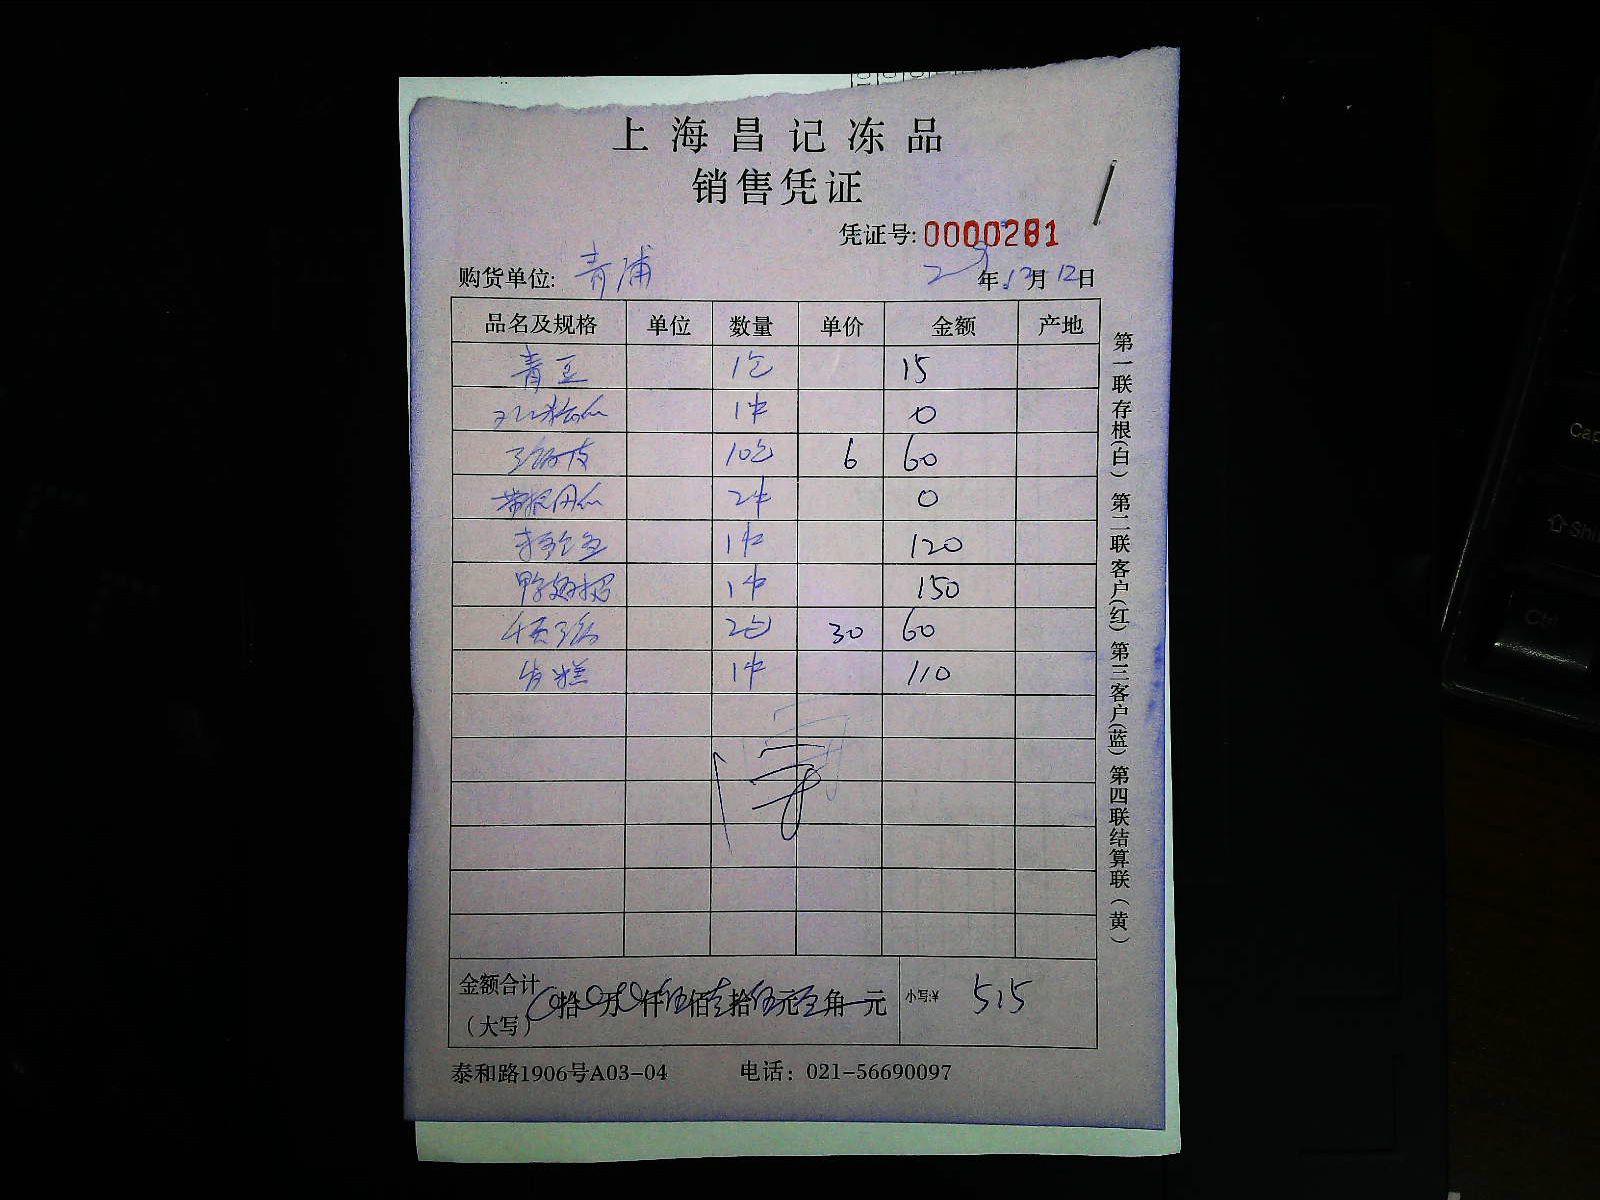 上海昌记冻品
销售凭证
凭证号: 0000281
购货单位: 青浦 年12月12日
品名及规格 单位 数量 单价 金额 产地
青豆 1包 15
1件 0
10包 6 60
2件 0
1件 120
鸭翅根 1件 150
2包 30 60
发糕 1件 110
金额合计（大写） 0拾0万0仟伍佰壹拾伍元 角 元 小写:¥ 515
泰和路1906号A03-04 电话：021-56690097
第一联存根(白) 第二联客户(红) 第三客户(蓝) 第四联结算联(黄)